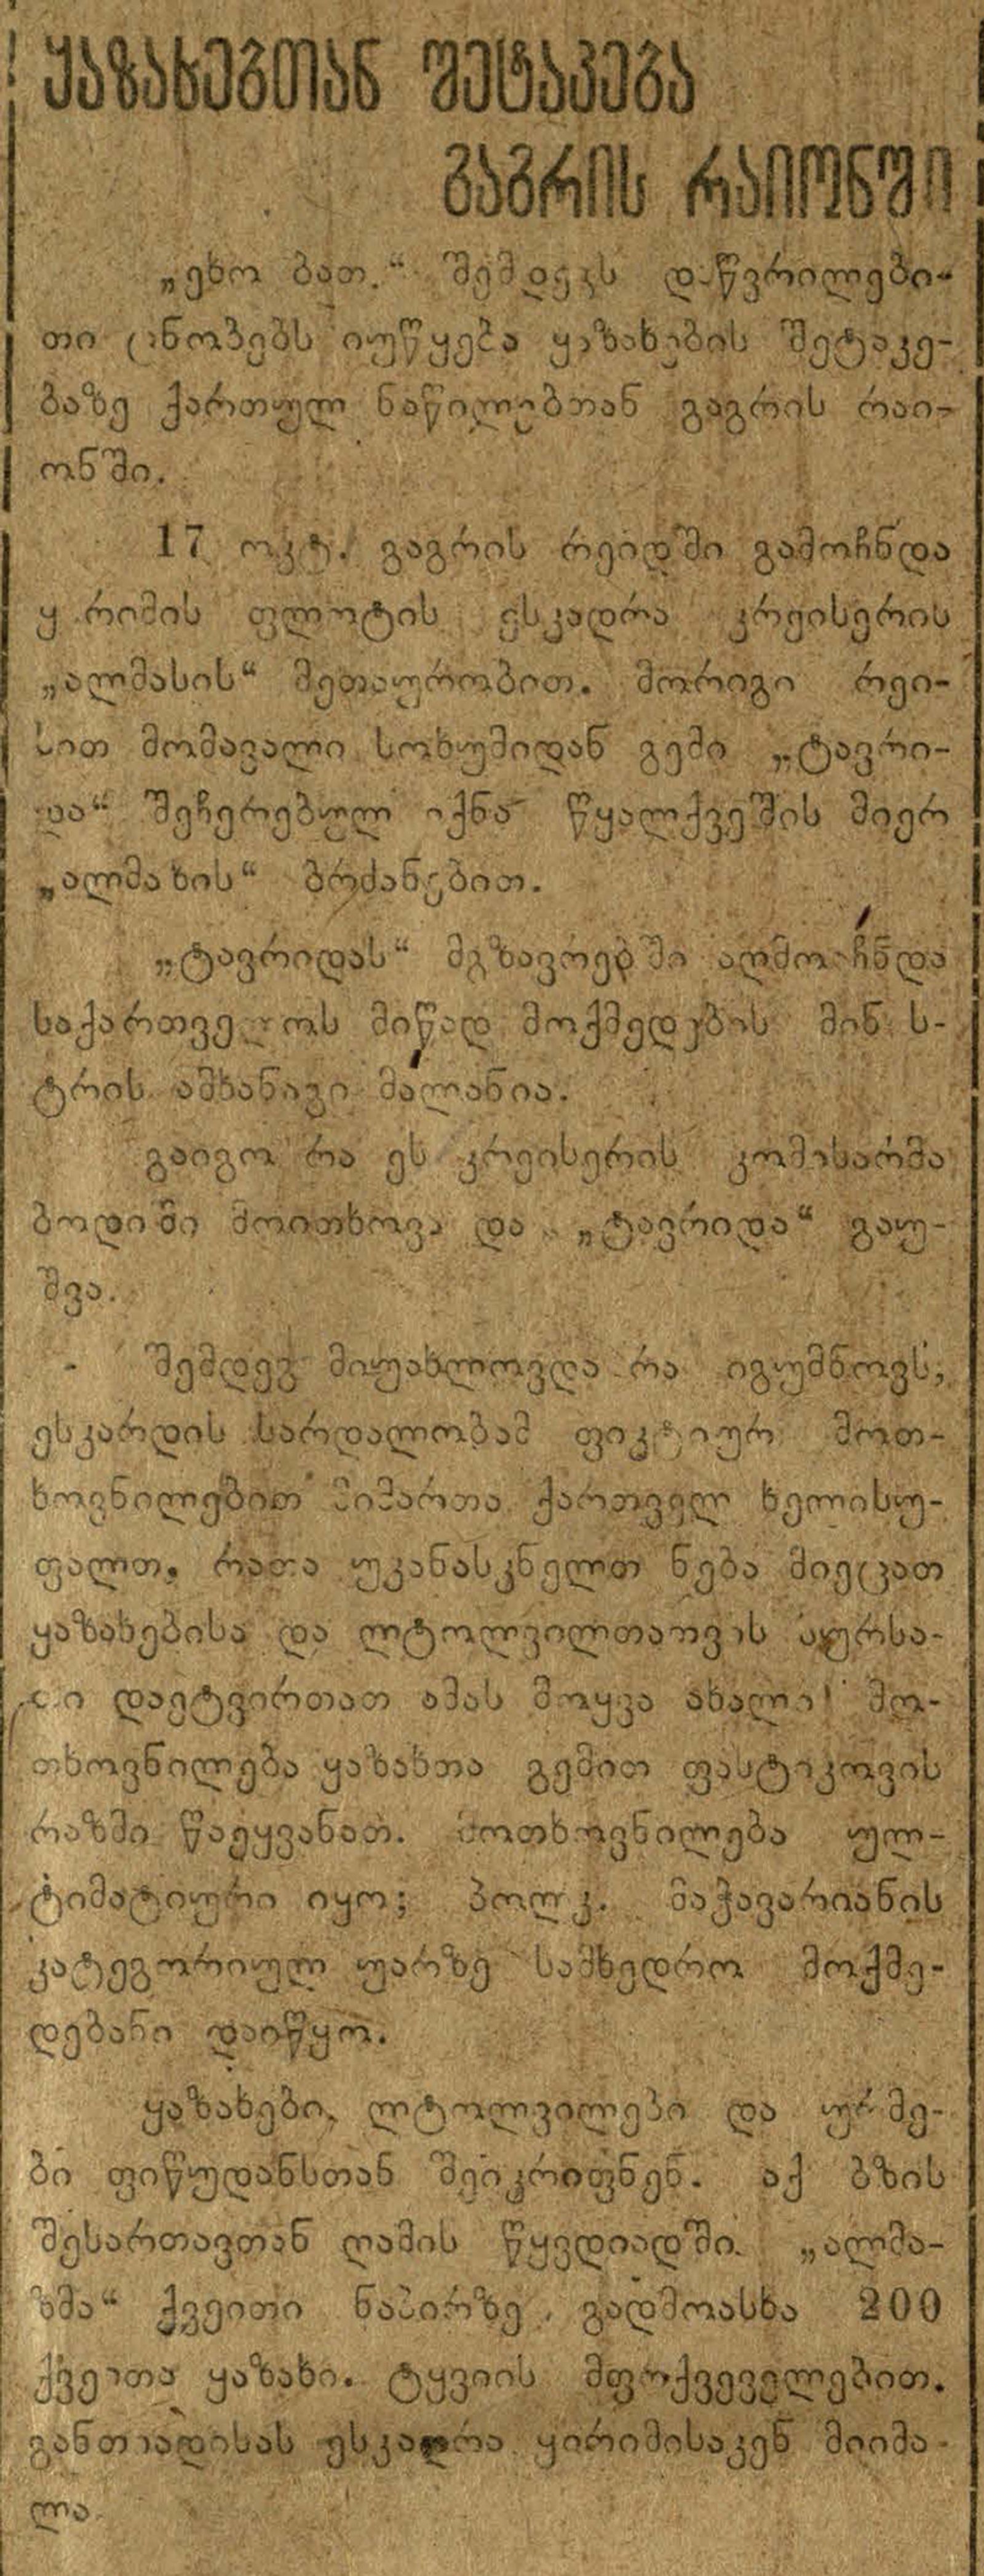 ყაზახებთან შეტაკება
გაგრის რაიონში
„ეხო ბათ.“ შემდეგს დაწვრილები-
თი ცნობებს იუწყება ყაზახების შეტაკე-
ბაზე ქართულ ნაწილებთან გაგრის რაი-
ონში.
17 ოკტ. გაგრის რეიდში გამოჩნდა
ყირიმის ფლოტის ესკადრა კრეისერის
„ალმასის“ მეთაურობით. მორიგი რეი-
სით მომავალი სოხუმიდან გემი „ტავრი-
და“ შეჩერებულ იქნა წყალქვეშის მიერ
„ალმაზის“ ბრძანებით.
„ტავრიდას“ მგზავრებში აღმოჩნდა
საქართველოს მიწად მოქმედების მინის-
ტრის ამხანაგი მალანია.
გაიგო რა ეს კრეისერის კომისარმა
ბოდიში მოითხოვა და „ტავრიდა“ გაუ-
შვა.
შემდეგ მიუახლოვდა რა იგუმნოვს,
ესკარდის სარდალობამ ფიკტიურ მოთ-
ხოვნილებით მიმართა ქართველ ხელისუ-
ფალთ, რათა უკანასკნელთ ნება მიეცათ
ყაზახებისა და ლტოლვილთათვის
დაეტვირთათ ამას მოყვა ახალი მო-
თხოვნილება ყაზახთა გემით ფასტიკოვის
რაზმი წაეყვანათ. მოთხოვნილება ულ-
ტიმატიური იყო; პოლკ. მაჭავარიანის
კატეგორიულ უარზე სამხედრო მოქმე-
დებანი დაიწყო.
ყაზახები, ლტოლვილები და ურმე-
ბი ფიწუდანსთან შეიკრიფნენ. აქ ბზის
შესართავთან ღამის წყვდიადში „ალმა-
ზმა“ ქვეითი ნაპირზე გადმოასხა 200
ქვეითა ყაზახი. ტყვიის მფრქვეველებით.
განთიადისას ესკადრა ყირიმისაკენ მიიმა-
ლა.